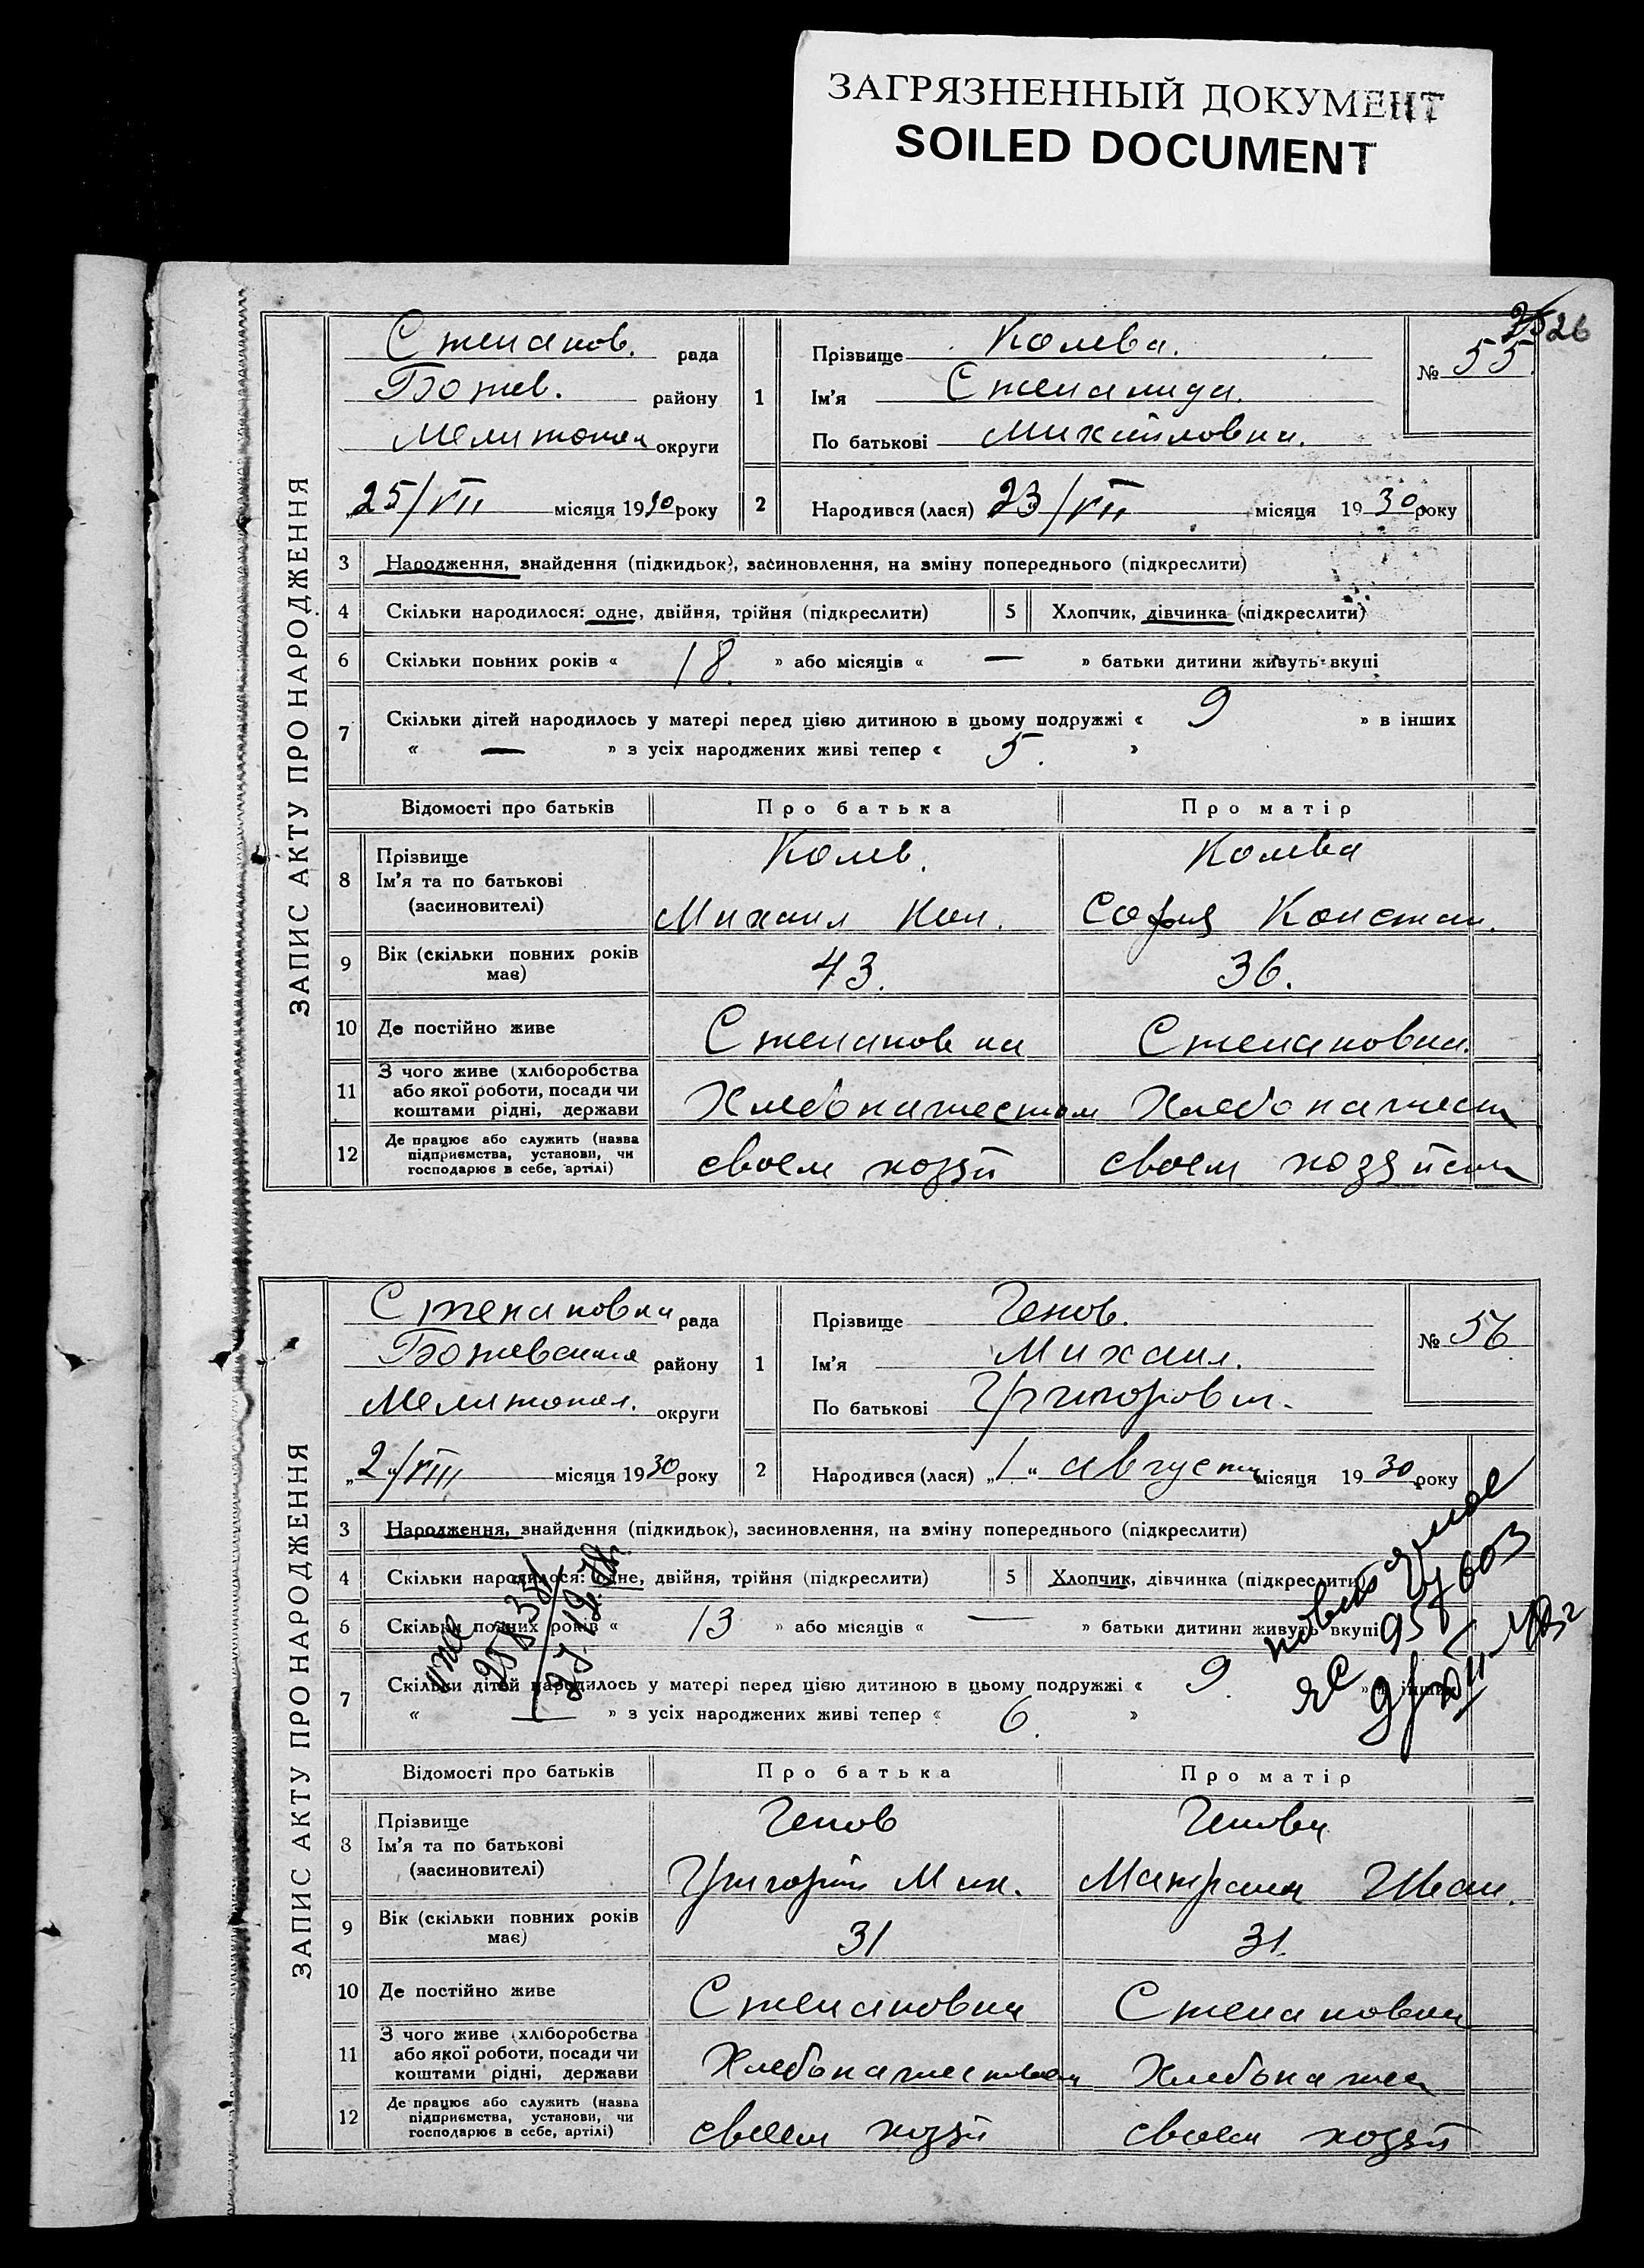 ЗАГРЯЗНЕННЫЙ ДОКУМЕНТ
SOILED DOCUMENT
26
ЗАПИС АКТУ ПРО НАРОДЖЕННЯ
Степанов. рада
Божев. району
Мелитопол округи
„25/VII місяця 1930 року
1 Прізвище Колева.
Ім'я Степанида.
По батькові Михайловна.
№ 55.
2 Народився (лася) 23/VII місяця 1930 року
3 Народження, знайдення (підкидьок), засиновлення, на зміну попереднього (підкреслити)
4 Скільки народилося: одне, двійня, трійня (підкреслити) 5 Хлопчик, дівчинка (підкреслити)
6 Скільки повних років « 18. » або місяців « — » батьки дитини живуть вкупі
7 Скільки дітей народилось у матері перед цією дитиною в цьому подружжі « 9 » в інших
« — » з усіх народжених живі тепер « 5. »
Відомості про батьків Про батька Про матір
8 Прізвище
Ім'я та по батькові
(засиновителі)
Колев. Колева
Михаил Ник. София Констан.
9 Вік (скільки повних років має) 43. 36.
10 Де постійно живе Степановка Степановка.
11 З чого живе (хліборобства
або якої роботи, посади чи
коштами рідні, держави
Хлебопашеством Хлебопашест
12 Де працює або служить (назва
підприємства, установи, чи
господарює в себе, артілі)
своем хозяй своем хозяйств
ЗАПИС АКТУ ПРО НАРОДЖЕННЯ
Степановка рада
Божевский району
Мелитопол. округи
„2"/VIII місяця 1930 року
1 Прізвище Генов.
Ім'я Михаил.
По батькові Григорович.
№ 56
2 Народився (лася) „1" августа місяця 1930 року
3 Народження, знайдення (підкидьок), засиновлення, на зміну попереднього (підкреслити)
4 Скільки народилося: одне, двійня, трійня (підкреслити) 5 Хлопчик, дівчинка (підкреслити)
6 Скільки повних років « 13 » або місяців « — » батьки дитини живуть вкупі
7 Скільки дітей народилось у матері перед цією дитиною в цьому подружжі « 9. » в інших
« — » з усіх народжених живі тепер « 6. »
Відомості про батьків Про батька Про матір
8 Прізвище
Ім'я та по батькові
(засиновителі)
Генов Генова
Григорий Мих. Матрена Иван.
9 Вік (скільки повних років має) 31 31.
10 Де постійно живе Степановка Степановка
11 З чого живе (хліборобства
або якої роботи, посади чи
коштами рідні, держави
Хлебопашеством Хлебопаше
12 Де працює або служить (назва
підприємства, установи, чи
господарює в себе, артілі)
своем хозяй своем хозяй